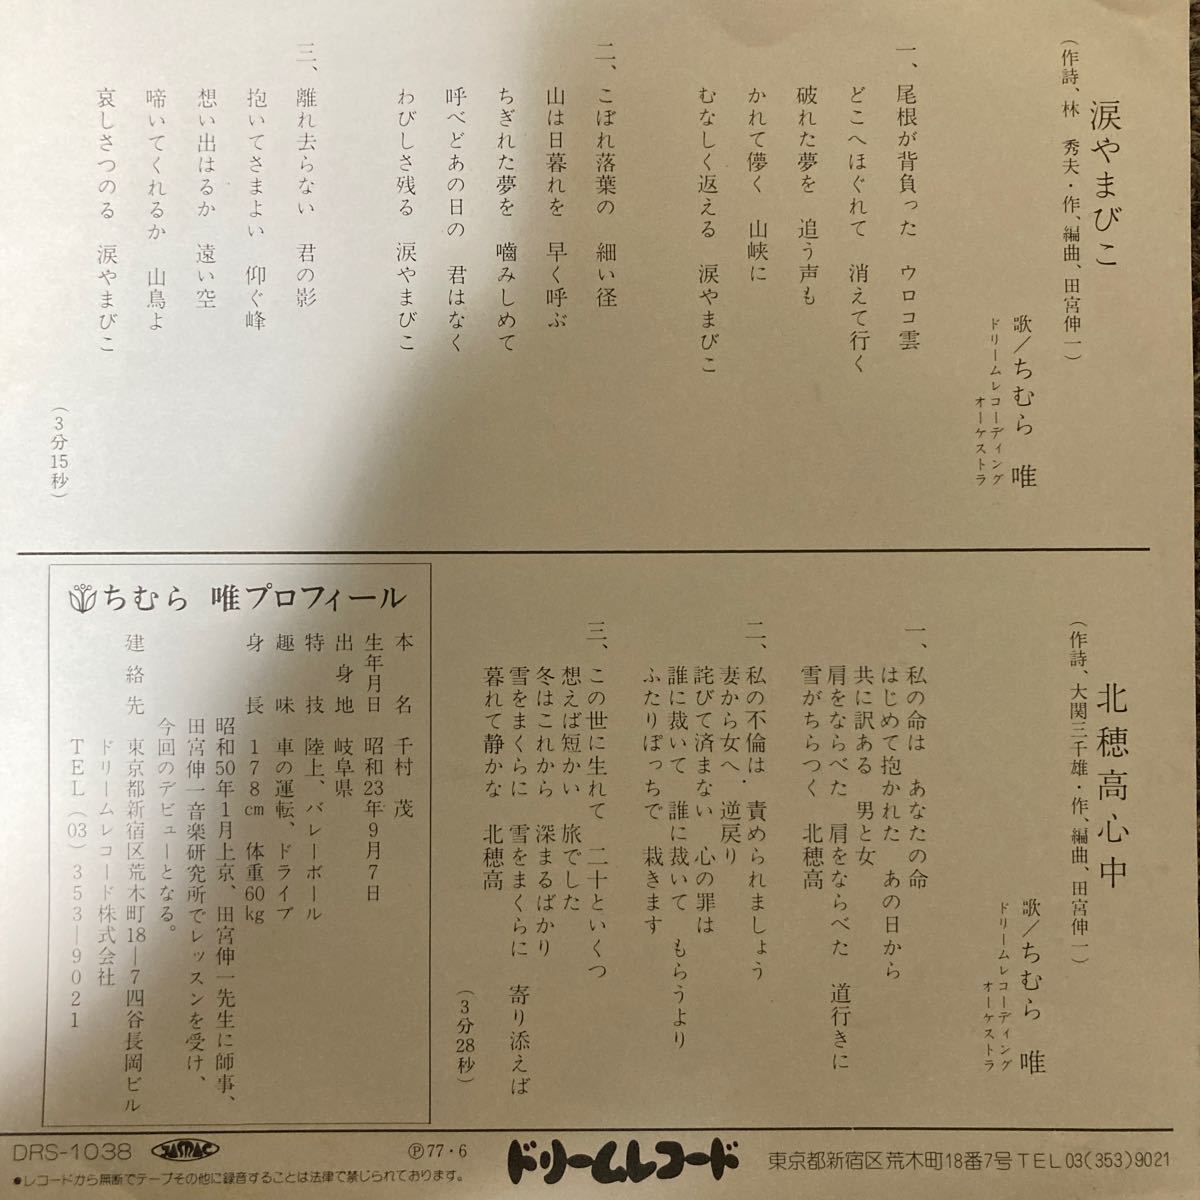 涙やまびこ
（作詩、林 秀夫・作、編曲、田宮伸一）
歌／ちむら 唯
ドリームレコーディング
オーケストラ
一、尾根が背負った ウロコ雲
どこへほぐれて 消えて行く
破れた夢を 追う声も
かれて儚く 山峡に
むなしく返える 涙やまびこ
二、こぼれ落葉の 細い径
山は日暮れを 早く呼ぶ
ちぎれた夢を 嚙みしめて
呼べどあの日の 君はなく
わびしさ残る 涙やまびこ
三、離れ去らない 君の影
抱いてさまよい 仰ぐ峰
想い出はるか 遠い空
啼いてくれるか 山鳥よ
哀しさつのる 涙やまびこ
（3分15秒）
北穂高心中
（作詩、大関三千雄・作、編曲、田宮伸一）
歌／ちむら 唯
ドリームレコーディング
オーケストラ
一、私の命は あなたの命
はじめて抱かれた あの日から
共に訳ある 男と女
肩をならべた 肩をならべた 道行きに
雪がちらつく 北穂高
二、私の不倫は 責められましょう
妻から女へ 逆戻り
詫びて済まない 心の罪は
誰に裁いて 誰に裁いて もらうより
ふたりぽっちで 裁きます
三、この世に生れて 二十といくつ
想えば短かい 旅でした
冬はこれから 深まるばかり
雪をまくらに 雪をまくらに 寄り添えば
暮れて静かな 北穂高
（3分28秒）
ちむら 唯プロフィール
本名 千村 茂
生年月日 昭和23年9月7日
出身地 岐阜県
特技 陸上、バレーボール
趣味 車の運転、ドライブ
身長 178cm 体重60kg
昭和50年1月上京、田宮伸一先生に師事、
田宮伸一音楽研究所でレッスンを受け、
今回のデビューとなる。
建絡先 東京都新宿区荒木町18―7四谷長岡ビル
ドリームレコード株式会社
TEL（03）353―9021
DRS-1038 JASRAC ℗77・6 ドリームレコード 東京都新宿区荒木町18番7号 TEL 03(353)9021
●レコードから無断でテープその他に録音することは法律で禁じられております。